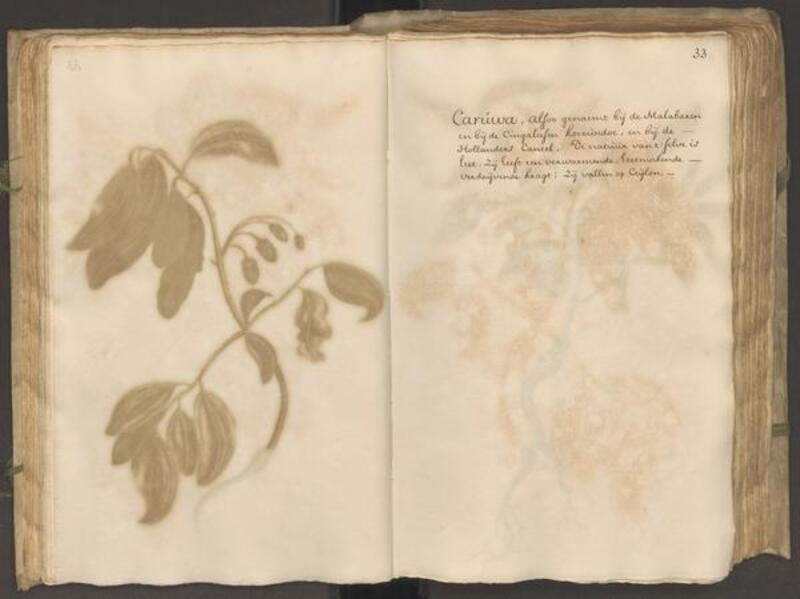 33
Carúwa, alsoo genaemt bij de Malabaren
en bij de Cingaleesen koruindoe, en bij de —
Hollanders Caneel. De natuur van 't selve is
heet. Zij heeft een verwarmende, —
verdrijvende kragt: Zij vallen op Ceijlon. —